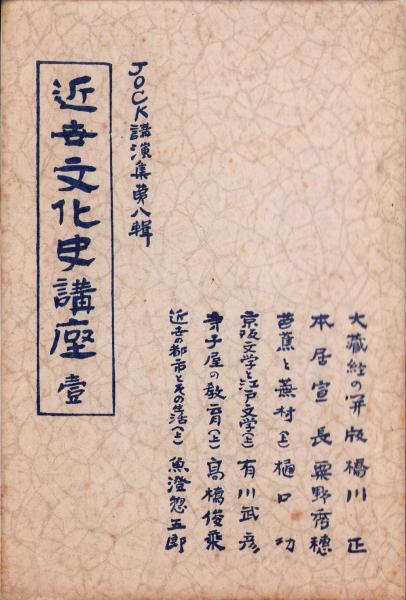 JOCK講演集第八輯
近世文化史講座 壹
大蔵経の開版 橋川正
本居宣長 粟野秀穂
芭蕉と蕪村(上) 樋口功
京阪文学と江戸文学(上) 有川武彦
寺子屋の教育(上) 高橋俊乗
近世の都市とその生活(上) 魚澄惣五郎